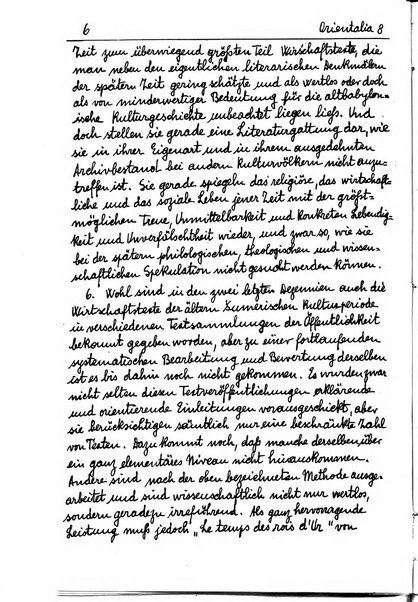 6 Orientalia 8
Zeit zum überwiegend größten Teil Wirschaftstexte, die
man neben den eigentlichen literarischen Denkmälern
der spätern Zeit gering schätzte und als wertlos oder doch
als von minderwertiger Bedeutung für die altbabylon-
ische Kulturgeschichte unbeachtet liegen ließ. Und
doch stellen sie gerade eine Literaturgattung dar, wie
sie in ihrer Eigenart und in ihrem ausgedehnten
Archivbestand bei andern Kulturvölkern nicht anzu-
treffen ist. Sie gerade spiegeln das religiöse, das wirtschaft-
liche und das soziale Leben jener Zeit mit der größt-
möglichen Treue, Unmittelbarkeit und konkreten Lebendig-
keit und Unverfälschtheit wieder, und zwar so, wie sie
bei der spätern philologischen, theologischen und wissen-
schaftlichen Spekulation nicht gesucht werden können.
6. Wohl sind in den zwei letzten Dezennien auch die
Wirtschaftstexte der ältern sumerischen Kulturperiode
in verschiedenen Textsammlungen der Öffentlichkeit
bekannt gegeben worden, aber zu einer fortlaufenden
systematischen Bearbeitung und Bewertung derselben
ist es bis dahin noch nicht gekommen. Es wurden zwar
nicht selten diesen Textveröffentlichungen erklärende
und orientierende Einleitungen vorausgeschickt, aber
sie berücksichtigen sämtlich nur eine beschränkte Zahl
von Texten. Dazu kommt noch, daß manche derselben, über
ein ganz elementäres Niveau nicht hinauskommen.
Andere sind nach der oben bezeichneten Methode ausge-
arbeitet und sind wissenschaftlich nicht nur wertlos,
sondern geradezu irreführend. Als ganz hervorragende
Leistung muß jedoch „Le temps des rois d'Ur" von